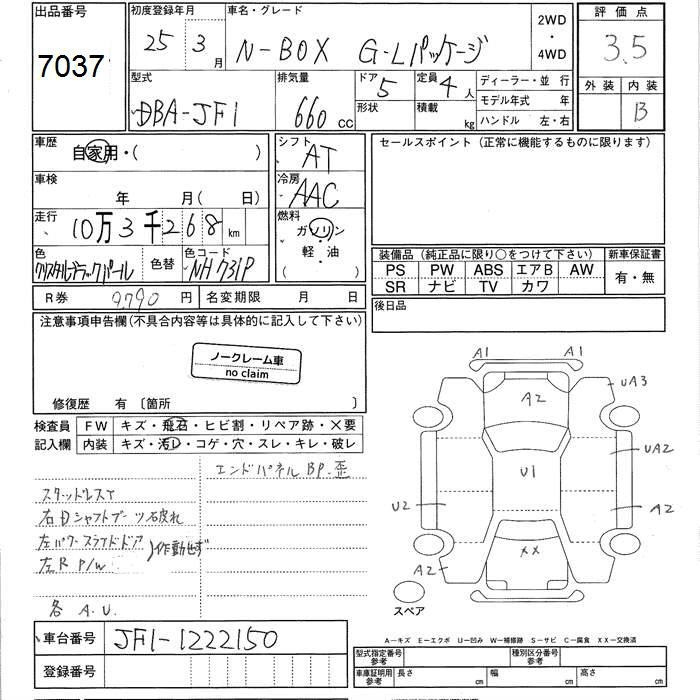 出品番号
7037
初度登録年月
25 3 月
車名・グレード
N-BOX G-Lパッケージ
2WD
・
4WD
評価点
3.5
外装 内装
B
型式
DBA-JF1
排気量
660 cc
ドア 5
形状
定員 4 人
積載 kg
ディーラー・並行
モデル年式 年
ハンドル 左・右
車歴
自家用・( )
シフト
AT
車検
年 月( 日)
冷房
AAC
走行
10万3千268 km
燃料
ガソリン
・
軽・油
色
クリスタルブラックパール
色替
色コード
NH731P
R券 9,790 円
名変期限 月 日
セールスポイント(正常に機能するものに限ります)
装備品(純正品に限り○をつけて下さい) 新車保証書
PS PW ABS エアB AW
SR ナビ TV カワ
有・無
後日品
注意事項申告欄(不具合内容等は具体的に記入して下さい)
ノークレーム車
no claim
修復歴 有〔箇所
検査員
記入欄
FW キズ・飛石・ヒビ割・リペア跡・×要
内装 キズ・汚レ・コゲ・穴・スレ・キレ・破レ
エンドパネルBP.歪
スタッドレスT
右Dシャフトブーツ破れ
左パワースライドドア
左R P/W
)作動せず
各 A.U.
A1 A1
A2
UA3
U1
UA2
U2
A2
XX
A2
スペア
車台番号 JF1-1222150
登録番号
A-キズ E-エクボ U-凹み W-補修跡 S-サビ C-腐食 XX-交換済
型式指定番号
参考
種別区分番号
参考
車庫証明用
参考
長さ cm 幅 cm 高さ cm